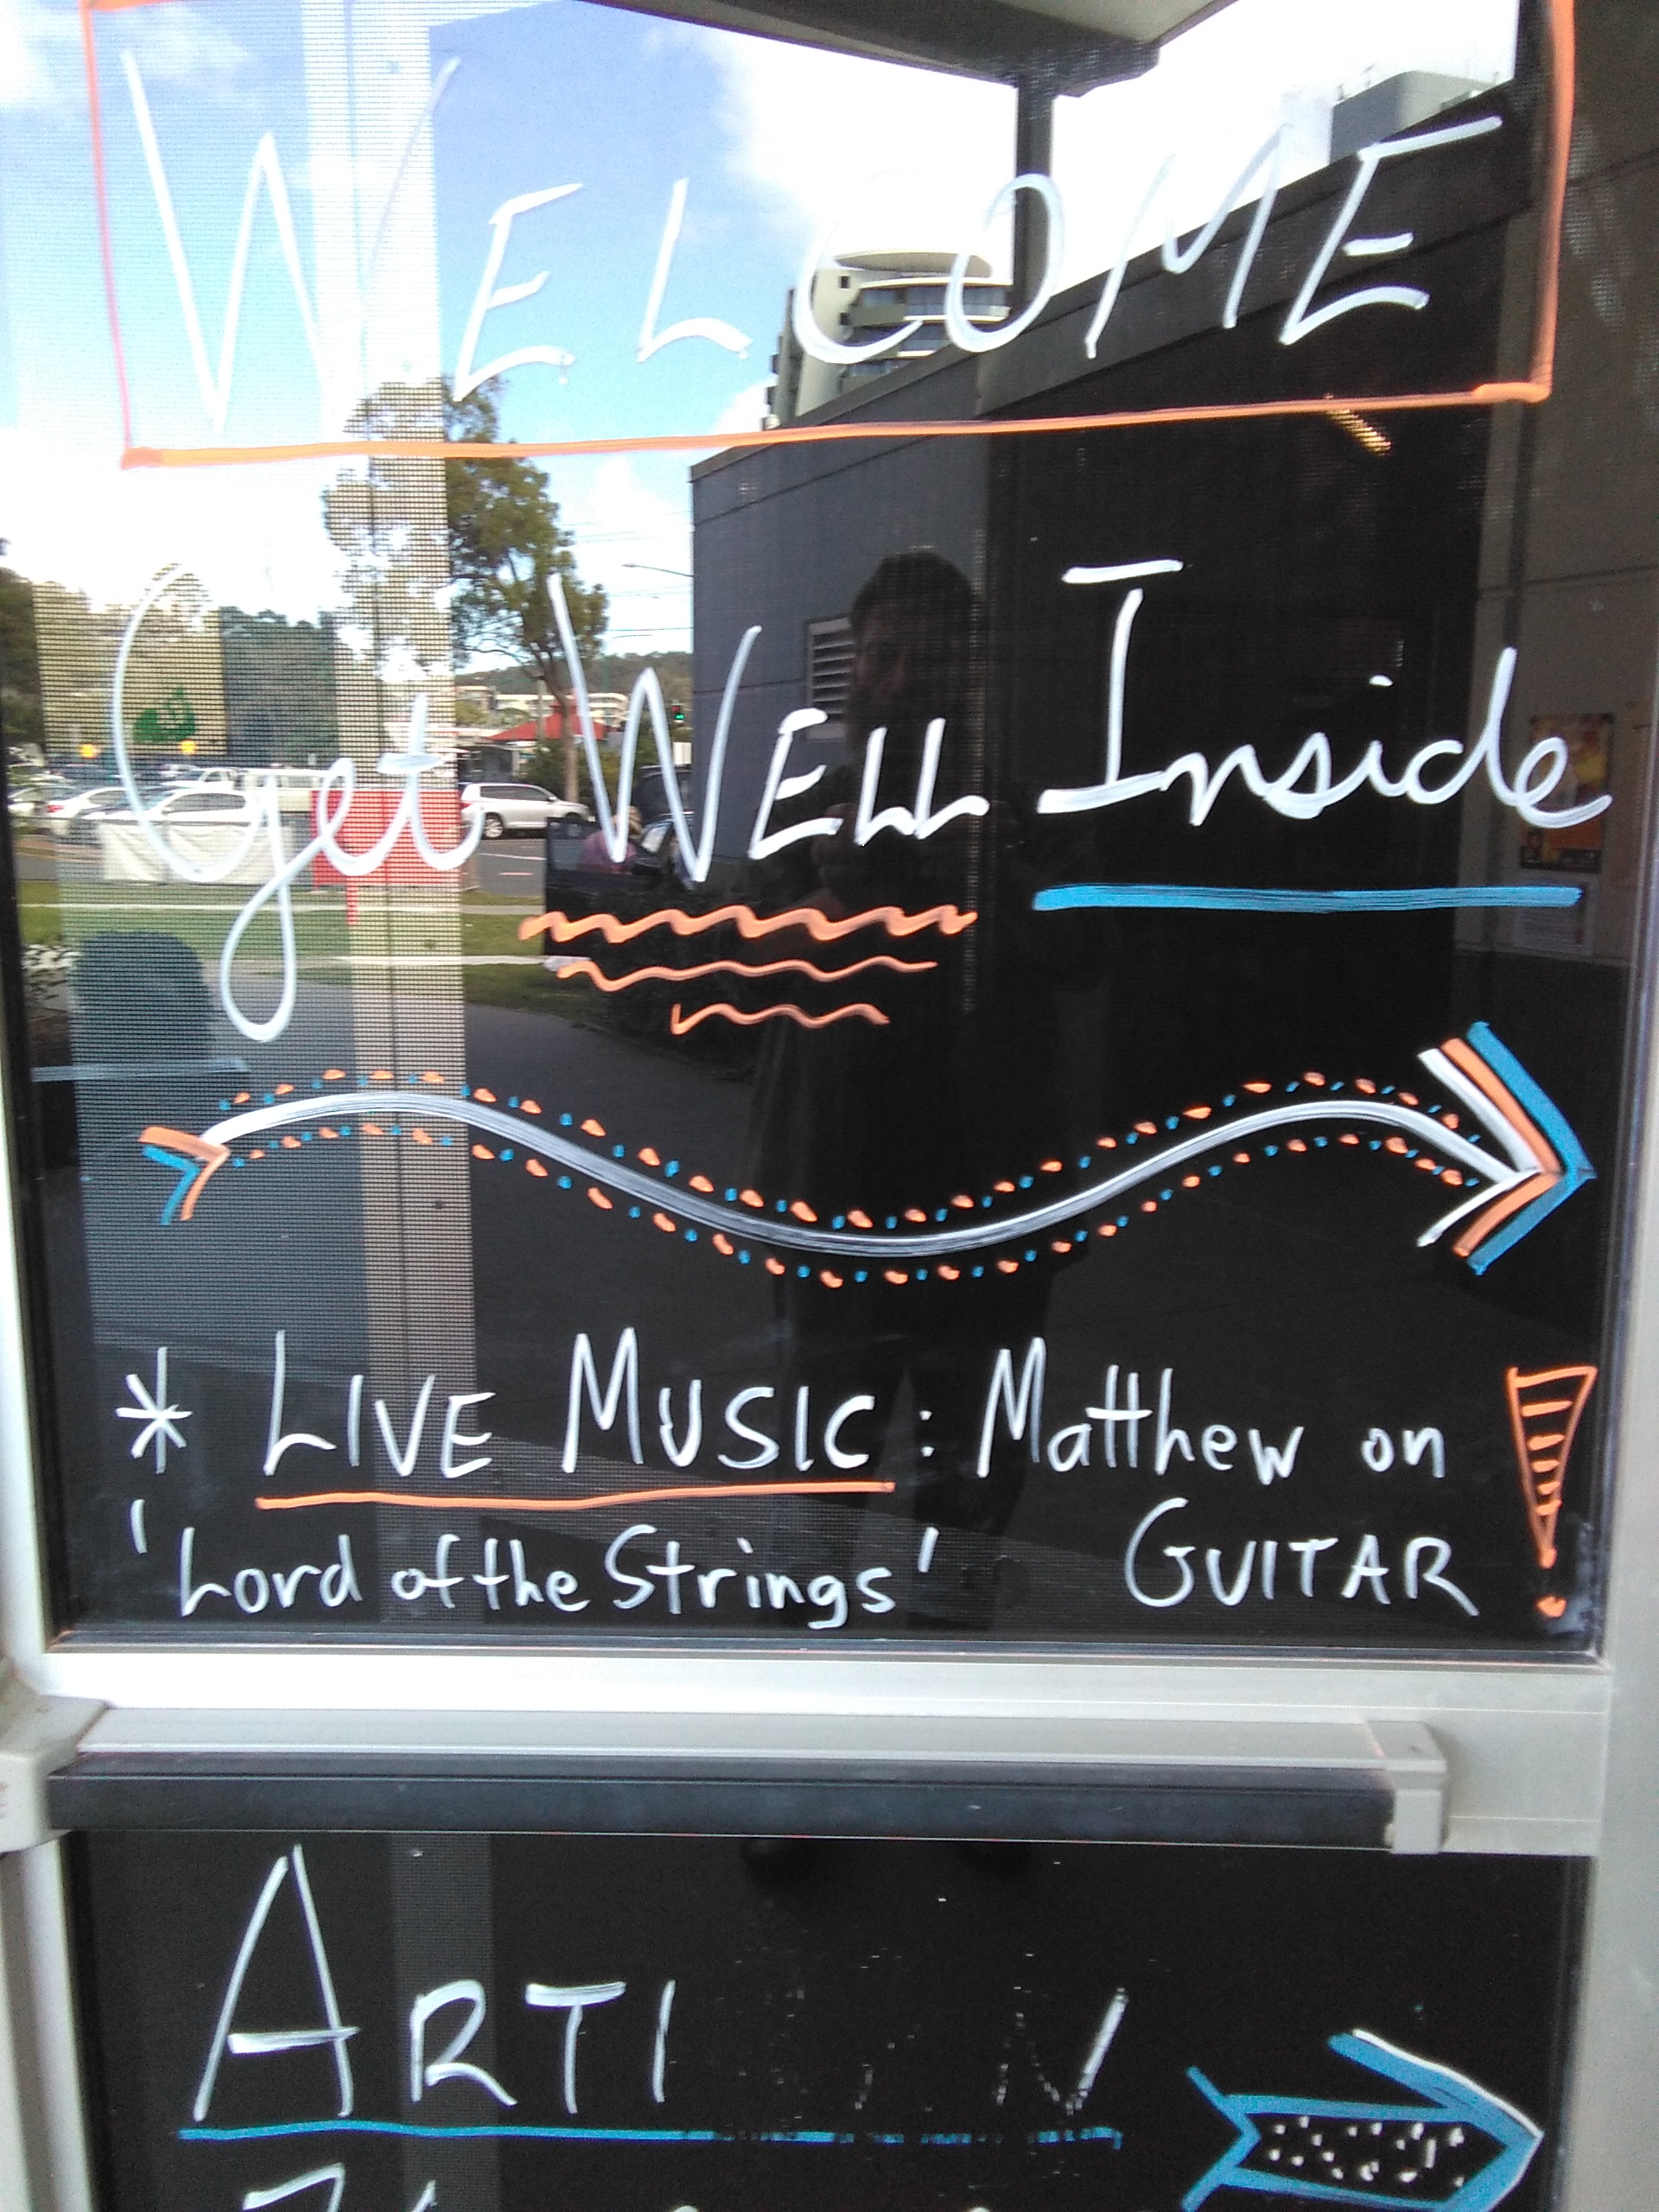 WELCOME
Get WELL Inside
* LIVE MUSIC: Matthew on
'Lord of the Strings' GUITAR !